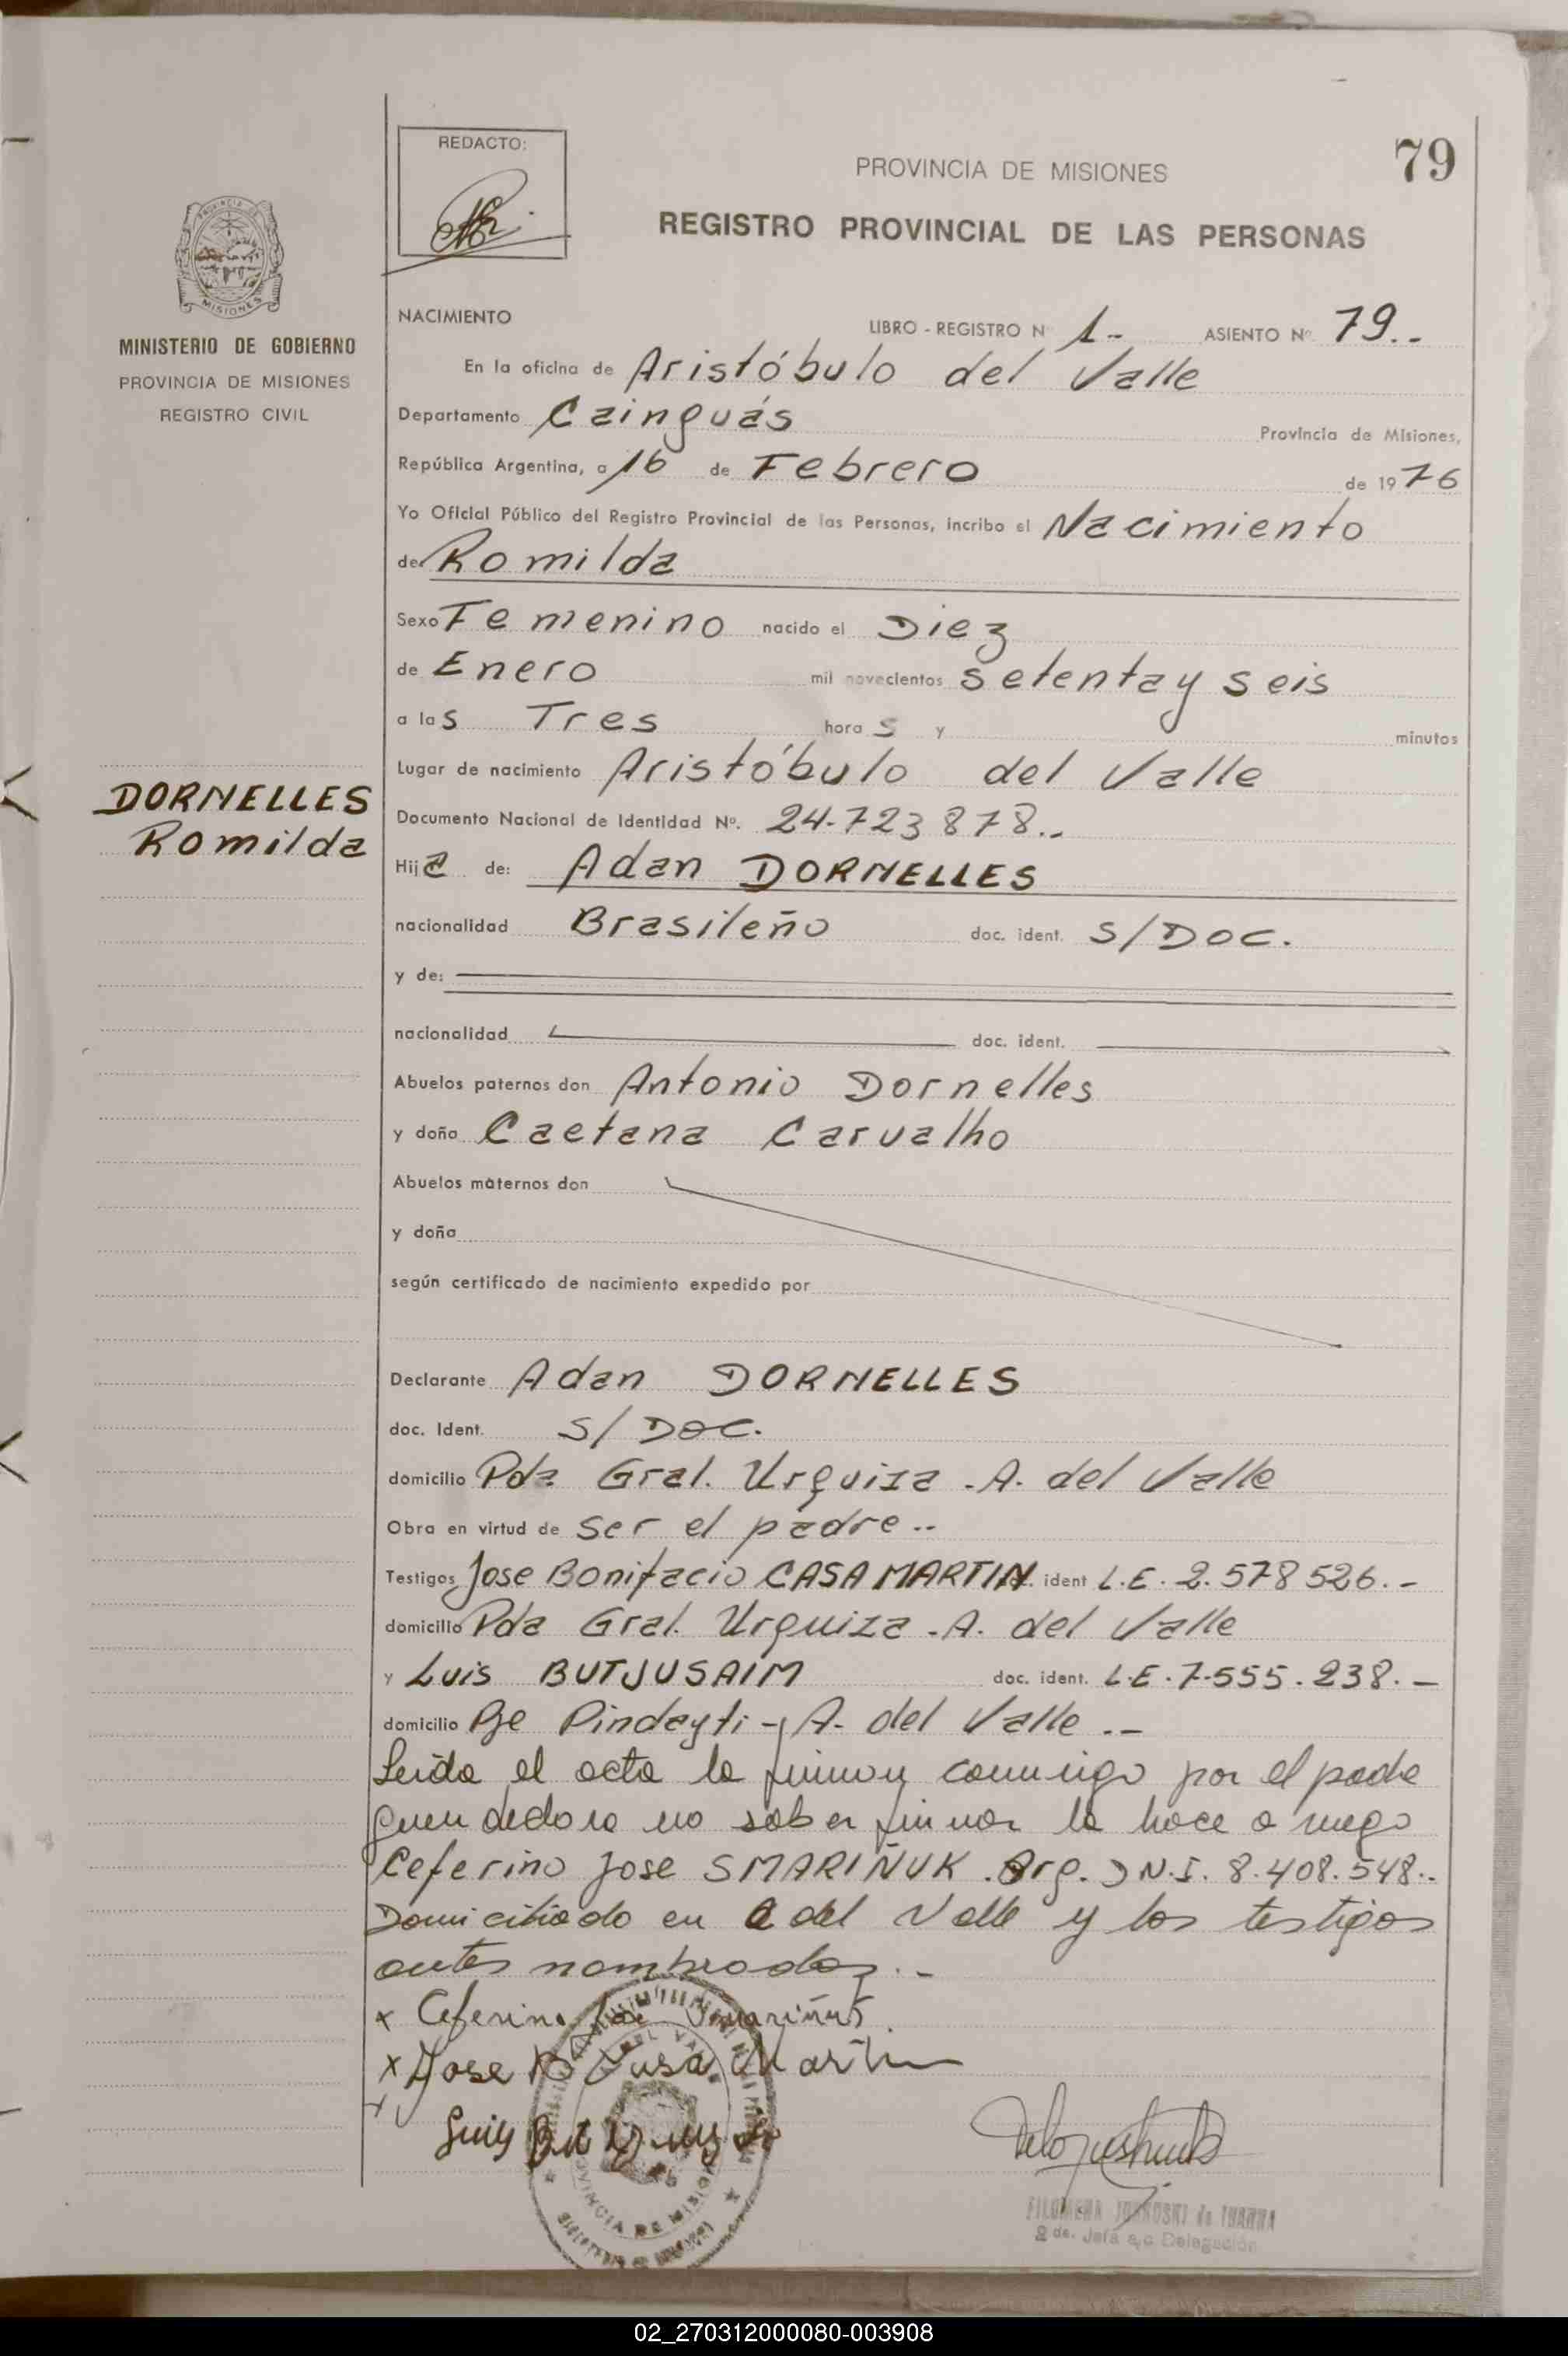 79
REDACTO:
PROVINCIA DE MISIONES
REGISTRO PROVINCIAL DE LAS PERSONAS
MISIONES
MINISTERIO DE GOBIERNO
PROVINCIA DE MISIONES
REGISTRO CIVIL
NACIMIENTO
LIBRO - REGISTRO Nº 1.- ASIENTO Nº 79..
En la oficina de Aristóbulo del Valle
Departamento Cainguás Provincia de Misiones,
República Argentina, a 16 de Febrero de 1976
Yo Oficial Público del Registro Provincial de las Personas, incribo el Nacimiento
de Romilda
Sexo Femenino nacido el Diez
de Enero mil novecientos setenta y seis
a las Tres horas y minutos
Lugar de nacimiento Aristóbulo del Valle
DORNELLES
Romilda
Documento Nacional de Identidad Nº. 24.723878..
Hija de: Adan DORNELLES
nacionalidad Brasileño doc. ident. S/DOC.
y de:
nacionalidad doc. ident.
Abuelos paternos don Antonio Dornelles
y doña Caetana Carvalho
Abuelos maternos don
y doña
según certificado de nacimiento expedido por
Declarante Adan DORNELLES
doc. Ident. S/DOC.
domicilio Pda Gral. Urquiza .A. del Valle
Obra en virtud de ser el padre..
Testigos Jose Bonifacio CASA MARTIN ident L.E. 2.578526.-
domicilio Pda Gral. Urquiza .A. del Valle
y Luis BUTJUSAIM doc. ident. L.E.7.555.238.-
domicilio Pje Pindayti - A. del Valle .-
Leida el acta la firman conmigo por el padre
quien declara no saber firmar lo hace a ruego
Ceferino Jose SMARIÑUK .Arg. D N.I. 8.408.548..
Domiciliado en A del Valle y los testigos
antes nombrados.-
x Ceferino Jose Smariñuk
x Jose B Casa Martin
Luis
PROVINCIA DE MISIONES
FILOMENA de
2 da. Jefa a/c Delegación
02_270312000080-003908